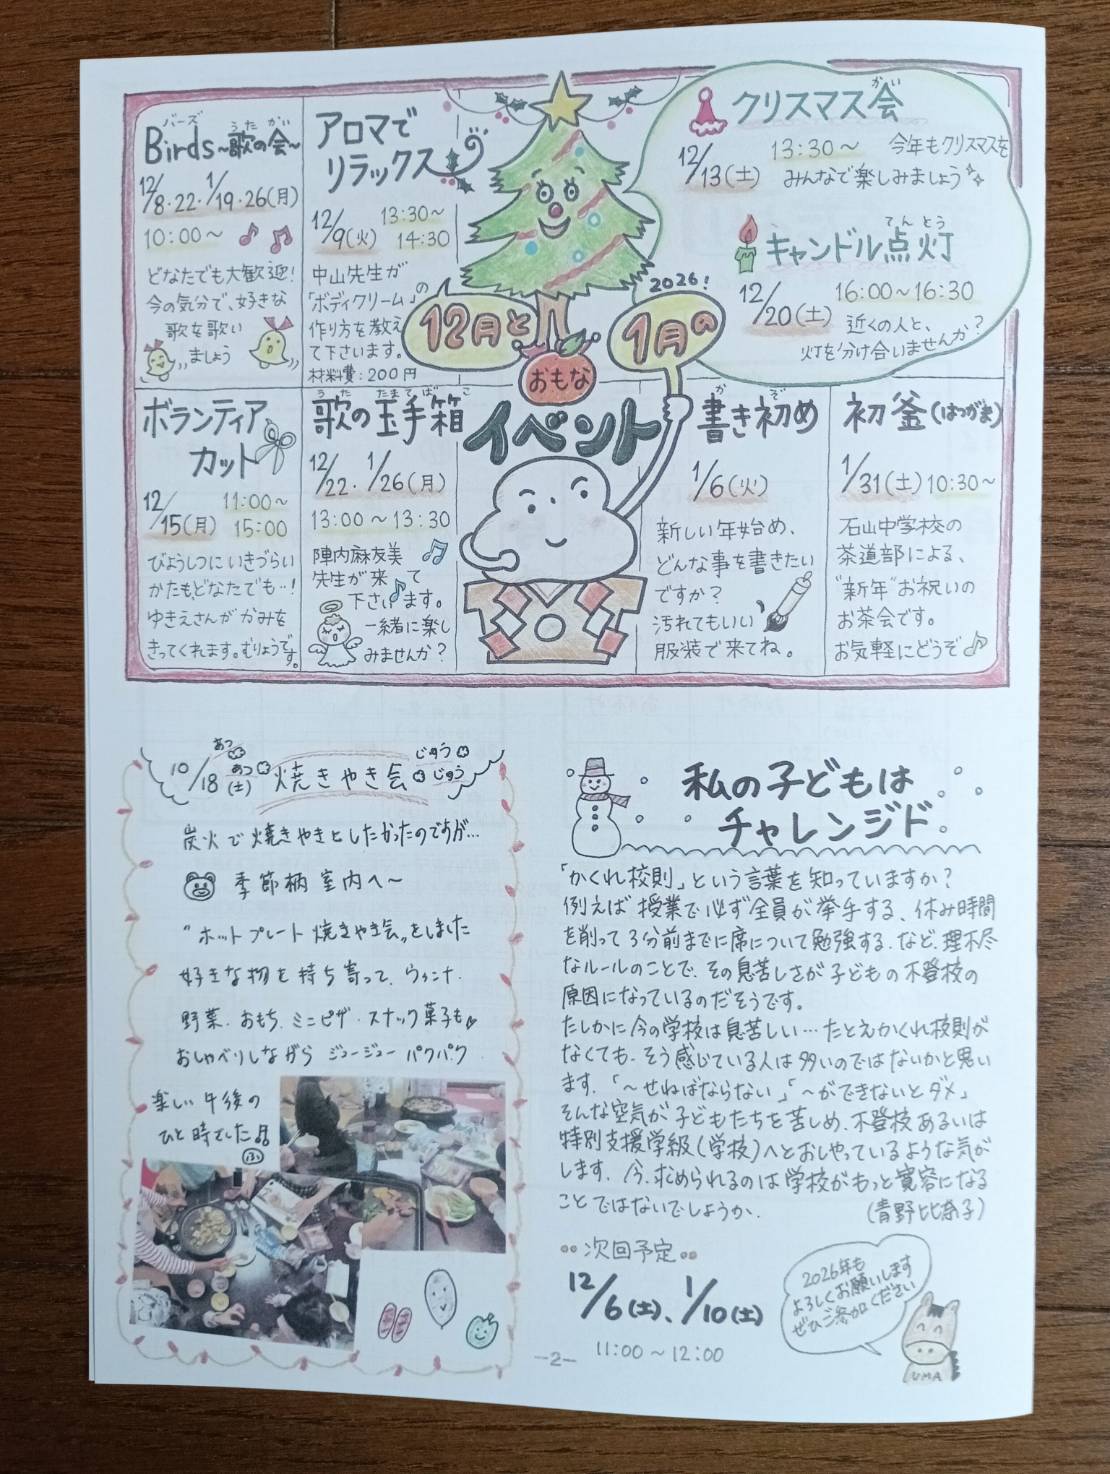 バーズ
うた かい
Birds~歌の会~
12/8・22・1/19・26(月)
10:00~
どなたでも大歓迎!
今の気分で、好きな
歌を歌い
ましょう
アロマで
リラックス
12/9(火) 13:30~
14:30
中山先生が
「ボディクリーム」の
作り方を教え
て下さいます。
材料費:200円
12月と
2026!
1月の
おもな
イベント
かい
クリスマス会
12/13(土) 13:30~ 今年もクリスマスを
みんなで楽しみましょう
てんとう
キャンドル点灯
12/20(土) 16:00~16:30
近くの人と、
灯を分け合いませんか?
ボランティア
カット
12/15(月) 11:00~
15:00
びょうしつにいきづらい
かたも、どなたでも…!
ゆきえさんがかみを
きってくれます。むりょうです。
うた たまてばこ
歌の玉手箱
12/22・1/26(月)
13:00~13:30
陣内麻友美
先生が来て
下さいます。
一緒に楽し
みませんか?
か ぞ
書き初め
1/6(火)
新しい年始め、
どんな事を書きたい
ですか?
汚れてもいい
服装で来てね。
初釜(はつがま)
1/31(土)10:30~
石山中学校の
茶道部による、
"新年"お祝いの
お茶会です。
お気軽にどうぞ
10/18(土) あつ あつ 焼きやき会 じゅう じゅう
炭火で焼きやきとしたかったのですが…
季節柄室内へ~
"ホットプレート焼きやき会"をしました
好きな物を持ち寄って、ウィンナ、
野菜、おもち、ミニピザ・スナック菓子も
おしゃべりしながら ジュージュー パクパク
楽しい午後の
ひと時でした
私の子どもは
チャレンジド
「かくれ校則」という言葉を知っていますか?
例えば授業で必ず全員が挙手する、休み時間
を削って3分前までに席について勉強する、など、理不尽
なルールのことで、その息苦しさが子どもの不登校の
原因になっているのだそうです。
たしかに今の学校は息苦しい…たとえかくれ校則が
なくても、そう感じている人は多いのではないかと思い
ます。「~せねばならない」「~ができないとダメ」
そんな空気が子どもたちを苦しめ、不登校あるいは
特別支援学級(学校)へとおしやっているような気が
します。今、求められるのは学校がもっと寛容になる
ことではないでしょうか。 (青野比奈子)
次回予定
12/6(土)、1/10(土)
11:00~12:00
2026年も
よろしくお願いします
ぜひご参加ください
UMA
-2-